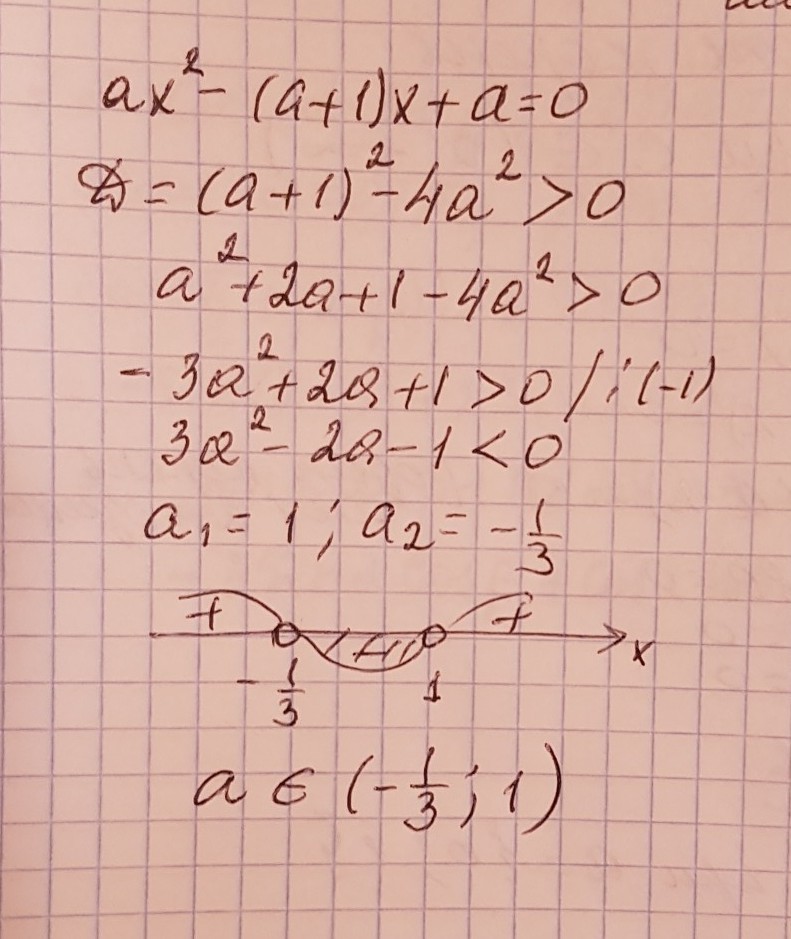 ax² - (a+1)x + a = 0
D = (a+1)² - 4a² > 0
a² + 2a + 1 - 4a² > 0
- 3a² + 2a + 1 > 0 / : (-1)
3a² - 2a - 1 < 0
a₁ = 1 ; a₂ = - 1/3
+ - + x
- 1/3 1
a ∈ (- 1/3 ; 1)